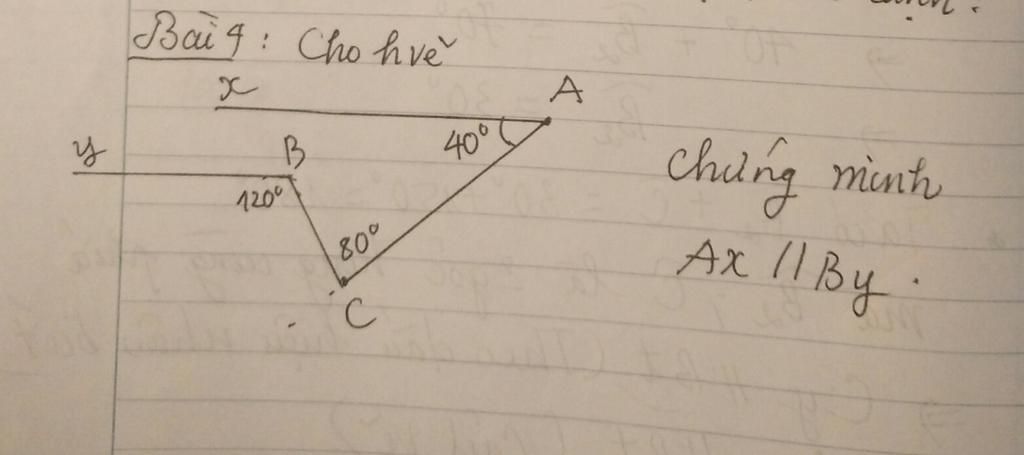 Bài 4: Cho hvẽ
x
A
40°
y
B
120°
80°
C
Chứng minh
Ax // By.